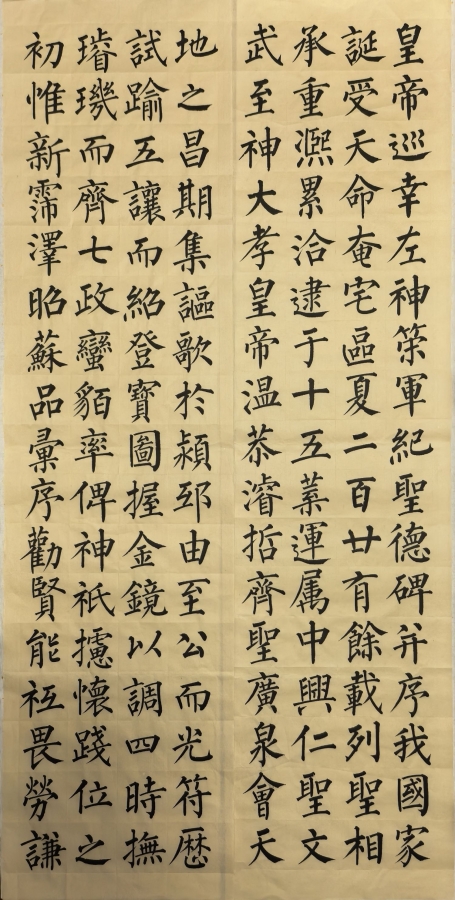 皇帝巡幸左神筞軍紀聖德碑并序我國家
誕受天命奄宅區夏二百廿有餘載列聖相
承重熈累洽逮于十五葉運属中興仁聖文
武至神大孝皇帝温恭濬哲齊聖廣泉會天
地之昌期集謳歌於潁邸由至公而光符厯
試踰五讓而紹登寶圖握金鏡以調四時撫
璿璣而齊七政蠻貊率俾神祇攄懷踐位之
初惟新霈澤昭蘇品彙序勸賢能祗畏勞謙